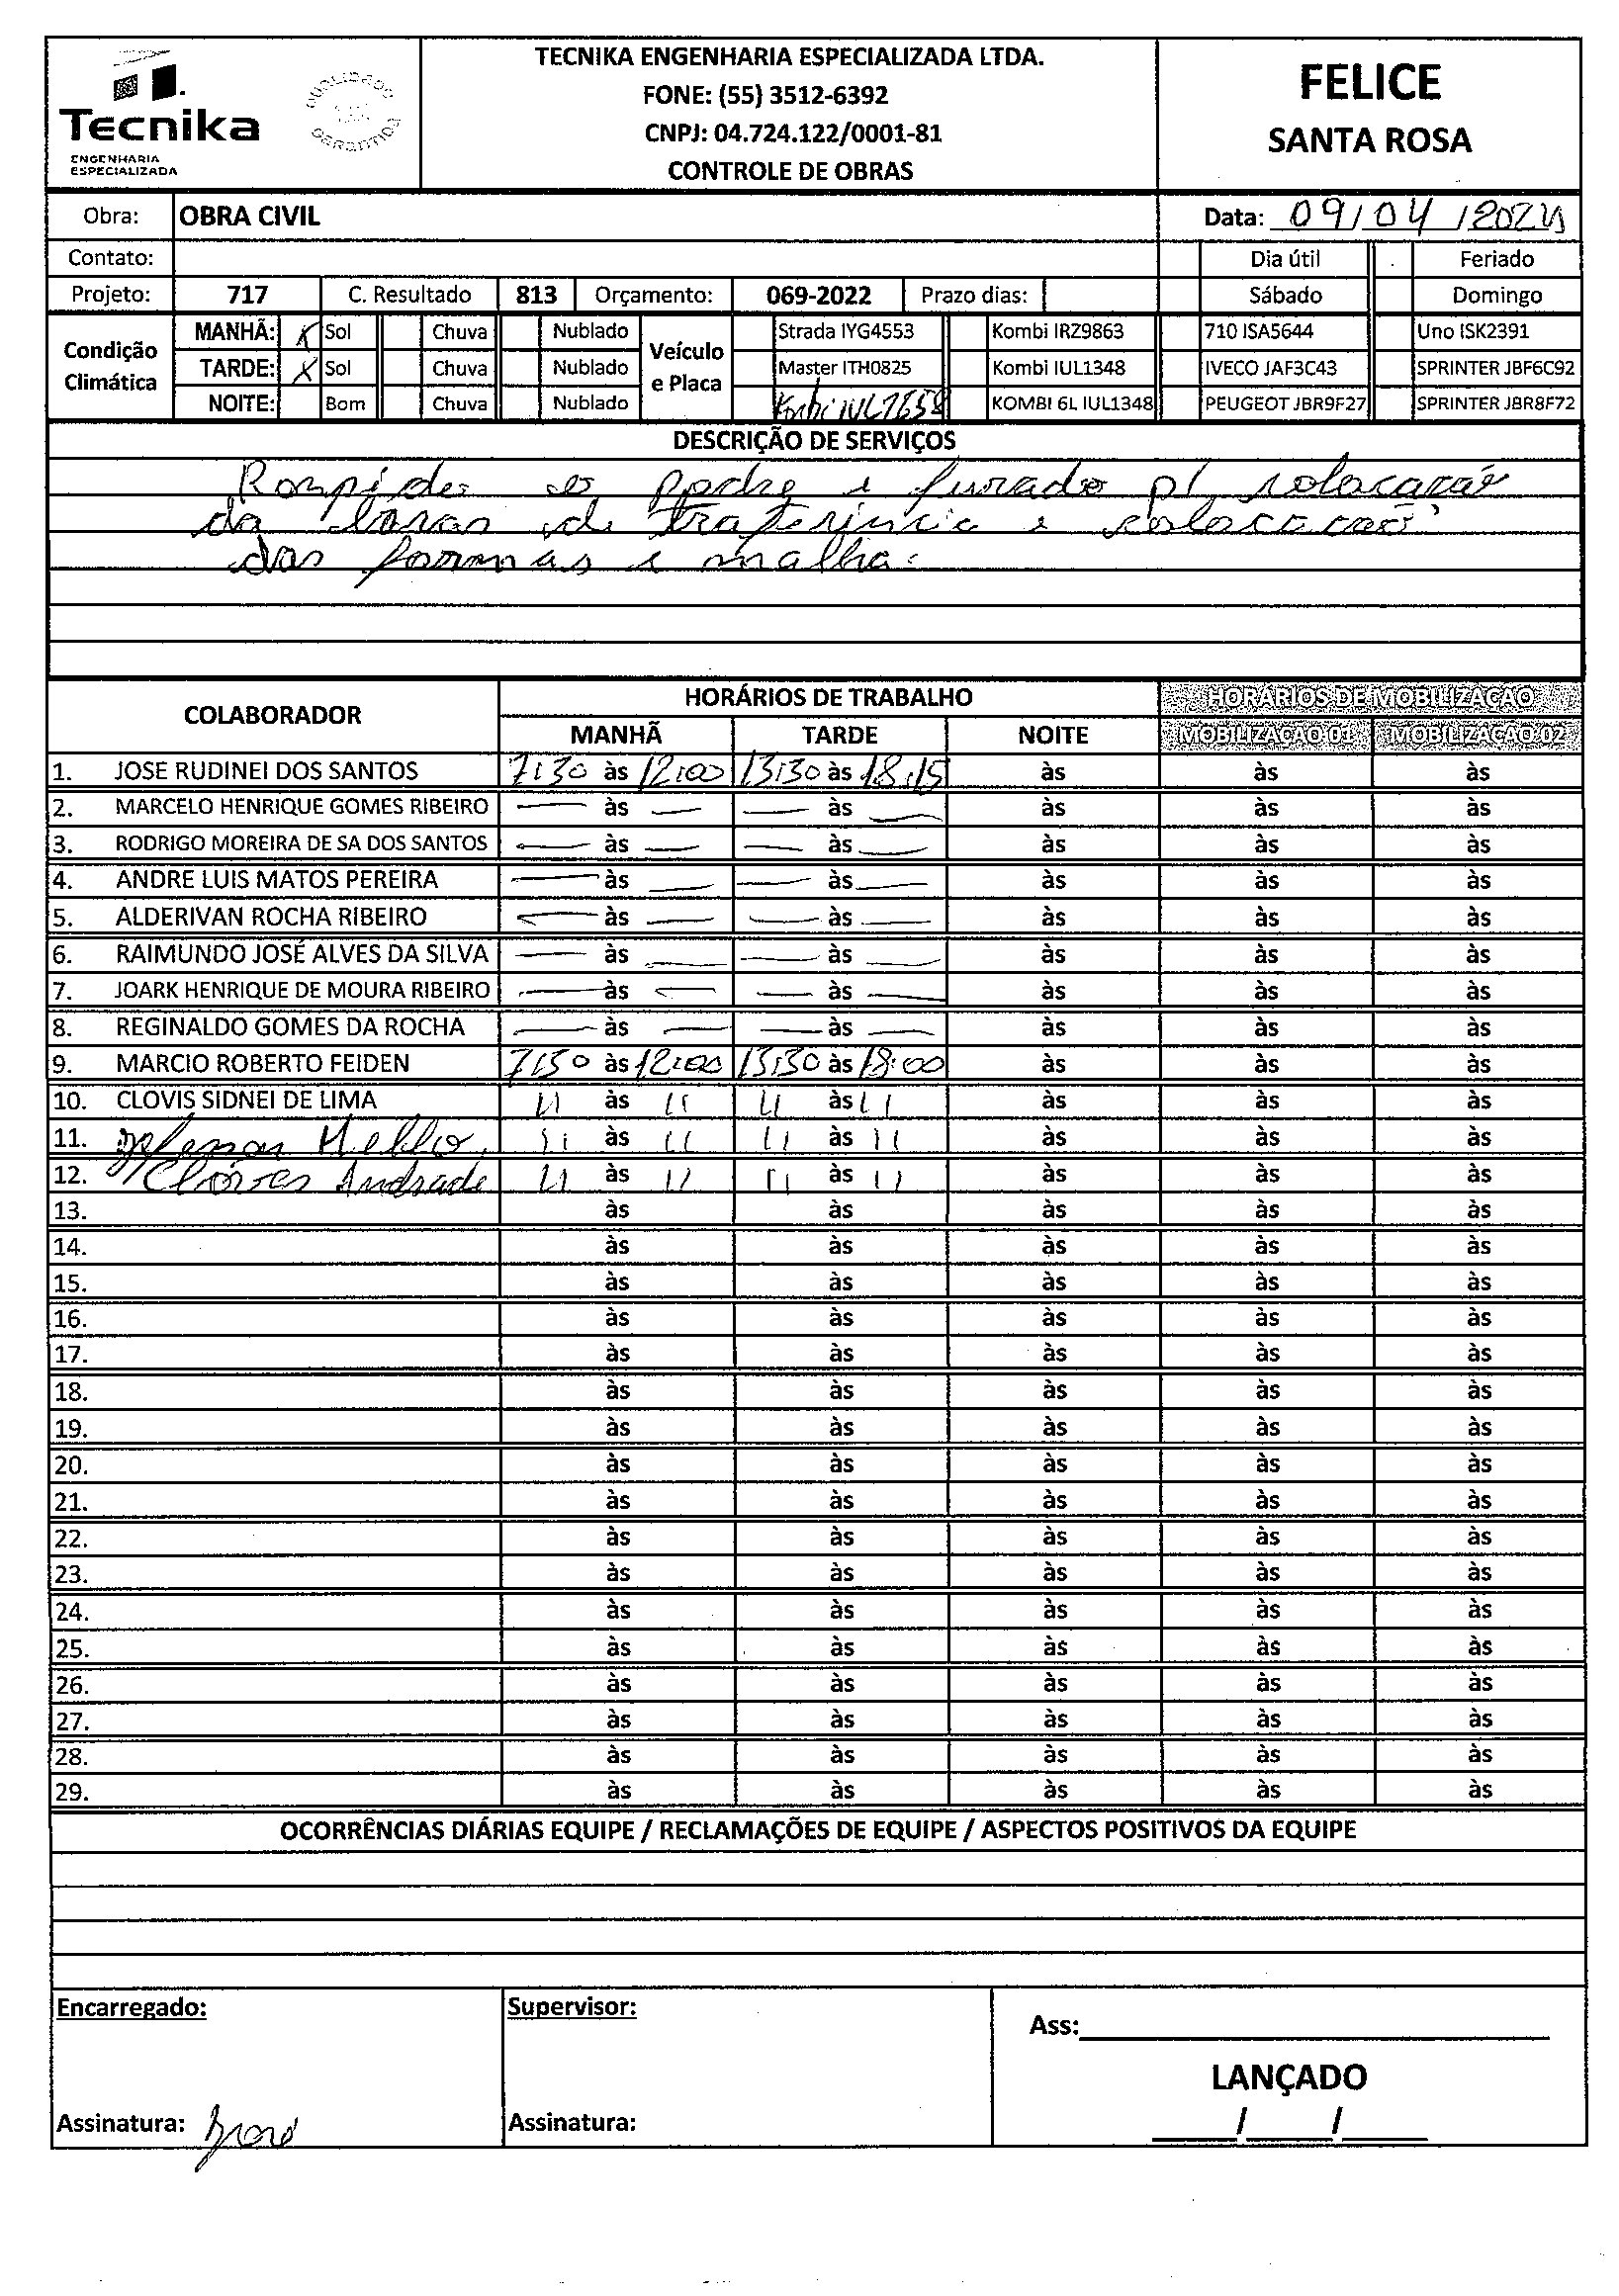 Tecnika
ENGENHARIA
ESPECIALIZADA
QUALIDADE
GARANTIDA
TECNIKA ENGENHARIA ESPECIALIZADA LTDA.
FONE: (55) 3512-6392
CNPJ: 04.724.122/0001-81
CONTROLE DE OBRAS
FELICE
SANTA ROSA
Obra: OBRA CIVIL Data: 09/04/2024
Contato: Dia útil Feriado
Projeto: 717 C. Resultado 813 Orçamento: 069-2022 Prazo dias: Sábado Domingo
Condição Climática Veículo e Placa
MANHÃ: X Sol Chuva Nublado Strada IYG4553 Kombi IRZ9863 710 ISA5644 Uno ISK2391
TARDE: X Sol Chuva Nublado Master ITH0825 Kombi IUL1348 IVECO JAF3C43 SPRINTER JBF6C92
NOITE: Bom Chuva Nublado Kombi IUL7658 KOMBI 6L IUL1348 PEUGEOT JBR9F27 SPRINTER JBR8F72
DESCRIÇÃO DE SERVIÇOS
furado p/ colocaçaõ
da de e colocacaõ
das formas e malha.
COLABORADOR HORÁRIOS DE TRABALHO HORÁRIOS DE MOBILIZAÇÃO
MANHÃ TARDE NOITE MOBILIZAÇÃO 01 MOBILIZAÇÃO 02
1. JOSE RUDINEI DOS SANTOS 7:30 às 12:00 13:30 às 18:15 às às às
2. MARCELO HENRIQUE GOMES RIBEIRO — às — — às — às às às
3. RODRIGO MOREIRA DE SA DOS SANTOS — às — — às — às às às
4. ANDRE LUIS MATOS PEREIRA — às — — às — às às às
5. ALDERIVAN ROCHA RIBEIRO — às — — às — às às às
6. RAIMUNDO JOSÉ ALVES DA SILVA — às — — às — às às às
7. JOARK HENRIQUE DE MOURA RIBEIRO — às — — às — às às às
8. REGINALDO GOMES DA ROCHA — às — — às — às às às
9. MARCIO ROBERTO FEIDEN 7:30 às 12:00 13:30 às 18:00 às às às
10. CLOVIS SIDNEI DE LIMA 11 às 11 11 às 11 às às às
11. Mello 11 às 11 11 às 11 às às às
12. Clóves Andrade 11 às 11 11 às 11 às às às
13. às às às às às
14. às às às às às
15. às às às às às
16. às às às às às
17. às às às às às
18. às às às às às
19. às às às às às
20. às às às às às
21. às às às às às
22. às às às às às
23. às às às às às
24. às às às às às
25. às às às às às
26. às às às às às
27. às às às às às
28. às às às às às
29. às às às às às
OCORRÊNCIAS DIÁRIAS EQUIPE / RECLAMAÇÕES DE EQUIPE / ASPECTOS POSITIVOS DA EQUIPE
Encarregado: Supervisor: Ass:
LANÇADO
Assinatura: Assinatura: / /